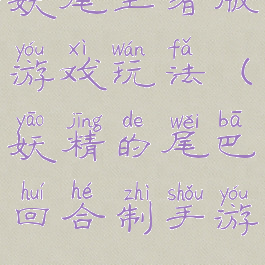 妖尾 版
yóu xì wán fǎ
游戏玩法（
yāo jīng de wěi bā
妖精的尾巴
huí hé zhì shǒu yóu
回合制手游